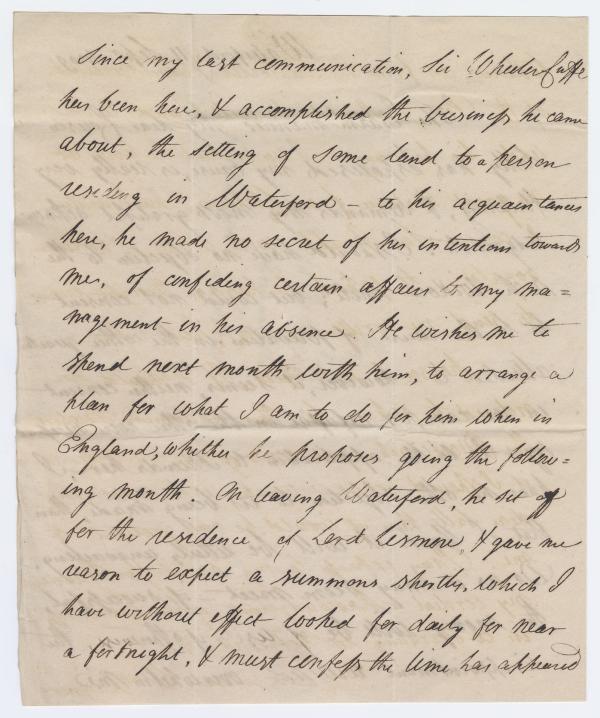 Since my last communication, Sir Wheeler Cuffe
has been here, & accomplished the business he came
about, the setting of some land to a person
residing in Waterford – to his acquaintances
here, he made no secret of his intentions towards
me, of confiding certain affairs to my ma=
nagement in his absence. He wishes me to
spend next month with him, to arrange a
plan for what I am to do for him when in
England, whither he proposes going the follow=
ing month. On leaving Waterford, he set off
for the residence of Lord Lismore, & gave me
reason to expect a summons shortly, which I
have without effect looked for daily for near
a fortnight, & must confess the time has appeared